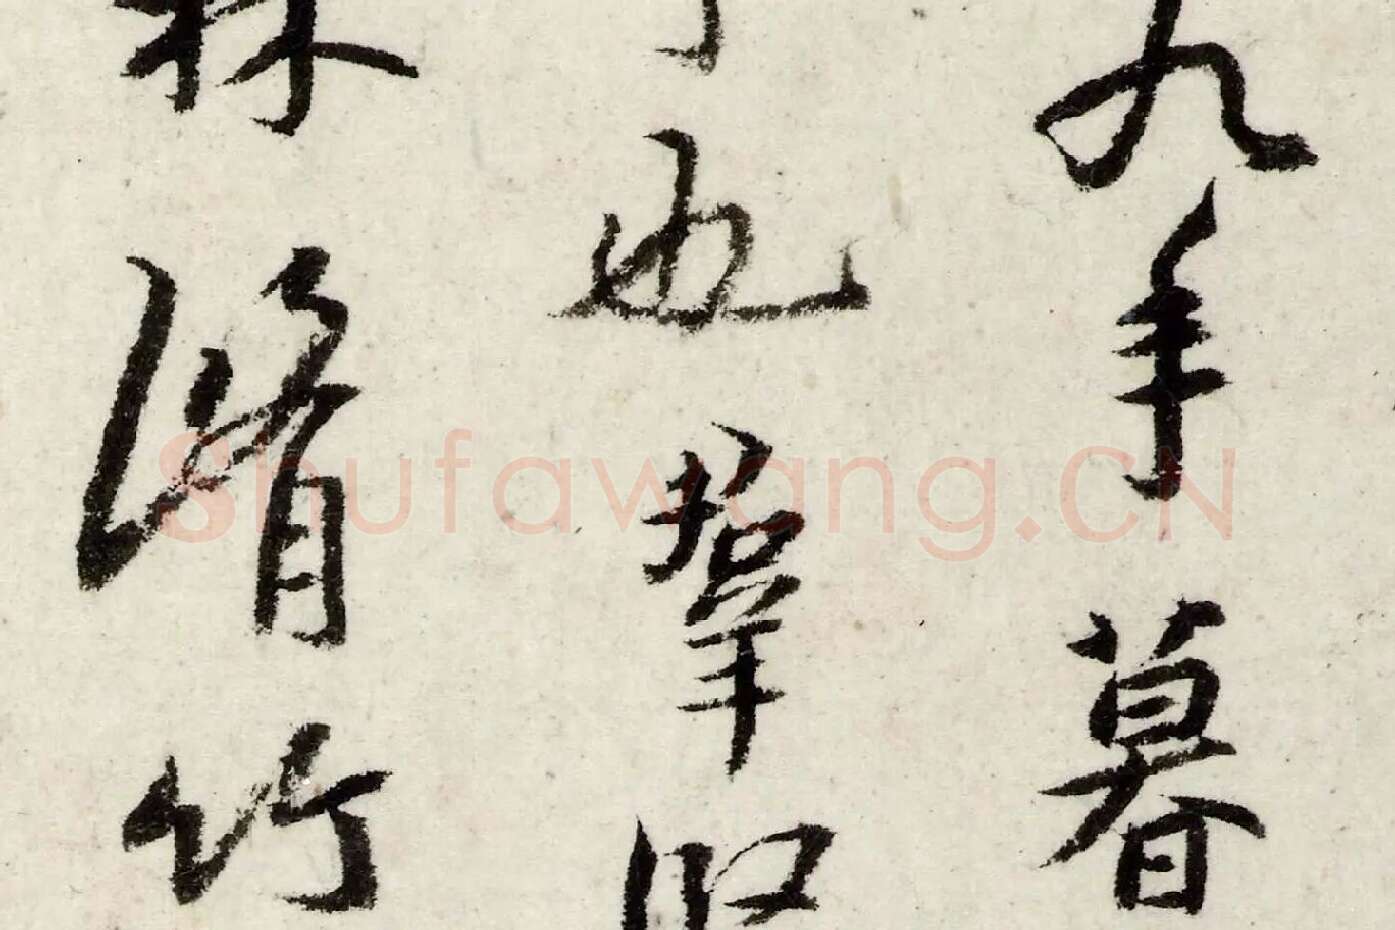 九年暮
也羣賢
林脩竹
Shufawang.CN